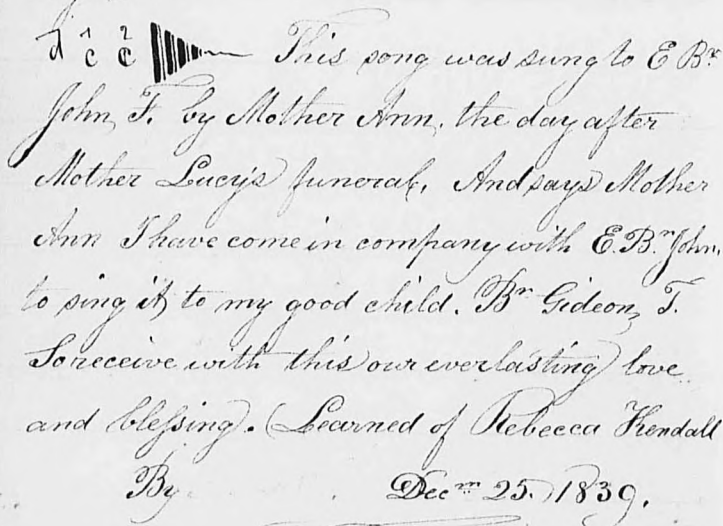 d 1c 2c This song was sung to E Br.
John, F. by Mother Ann, the day after
Mother Lucy's funeral. And says Mother
Ann I have come in company with E. Br. John,
to sing it to my good child. Br. Gideon, T.
So receive with this our everlasting love
and blessing. (Learned of Rebecca Kendall
By Decm 25. 1839.